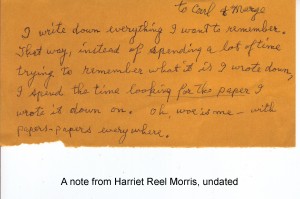 to Carl & Marge
I write down everything I want to remember.
That way, instead of spending a lot of time
trying to remember what it is I wrote down,
I spend the time looking for the paper I
wrote it down on. Oh, woe is me - with
papers - papers everywhere.
A note from Harriet Reel Morris, undated